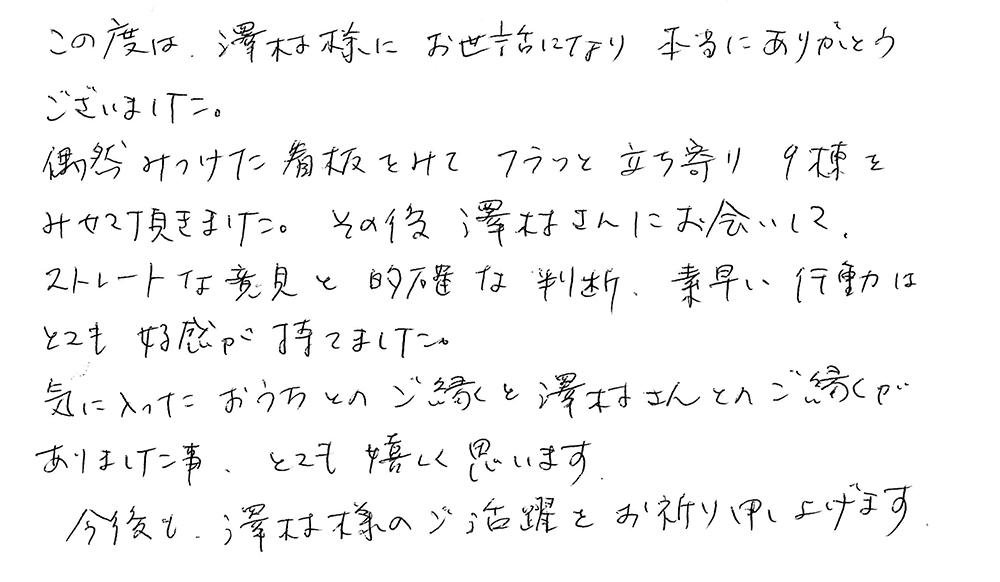 この度は、澤村様に お世話になり 本当にありがとう
ございました。
偶然みつけた看板をみて フラっと立ち寄り 9棟を
みせて頂きました。その後 澤村さんにお会いして、
ストレートな意見と的確な判断、素早い行動は
とても好感が持てました。
気に入ったおうちとのご縁と澤村さんとのご縁が
ありました事、とても嬉しく思います。
今後も、澤村様のご活躍をお祈り申し上げます。